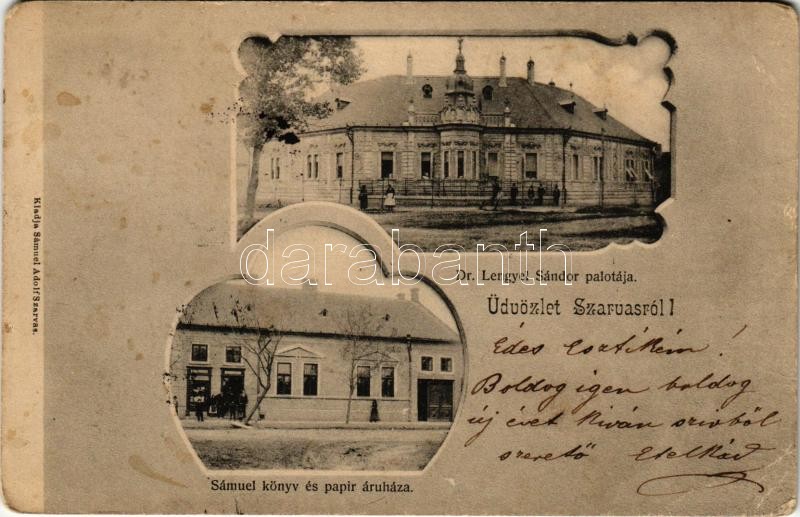 Dr. Lengyel Sándor palotája.
darabanth
Üdvözlet Szarvasról!
Édes Esztikém!
Boldog igen boldog
új évet kiván szivből
szerető Etelkád
Sámuel könyv és papir áruháza.
Kiadja Sámuel Adolf Szarvas.